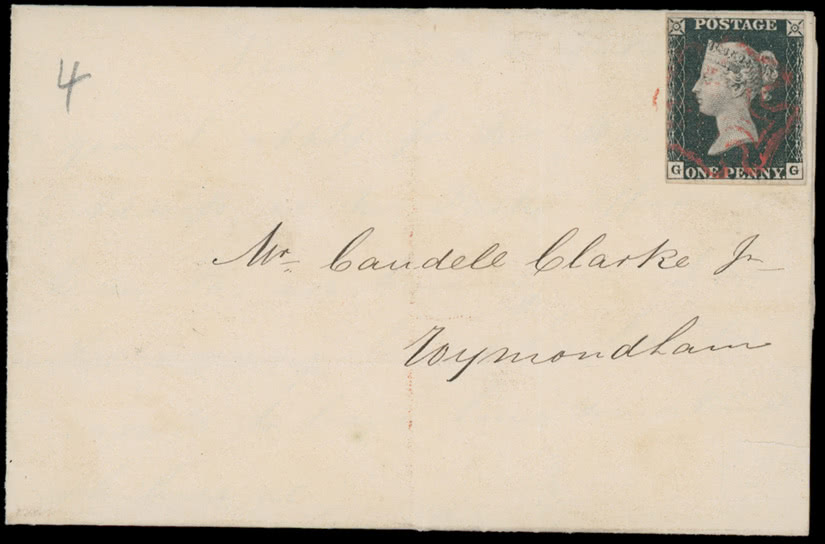 4
POSTAGE
G ONE PENNY. G
Mr. Caudell Clarke Jr
Wymondham